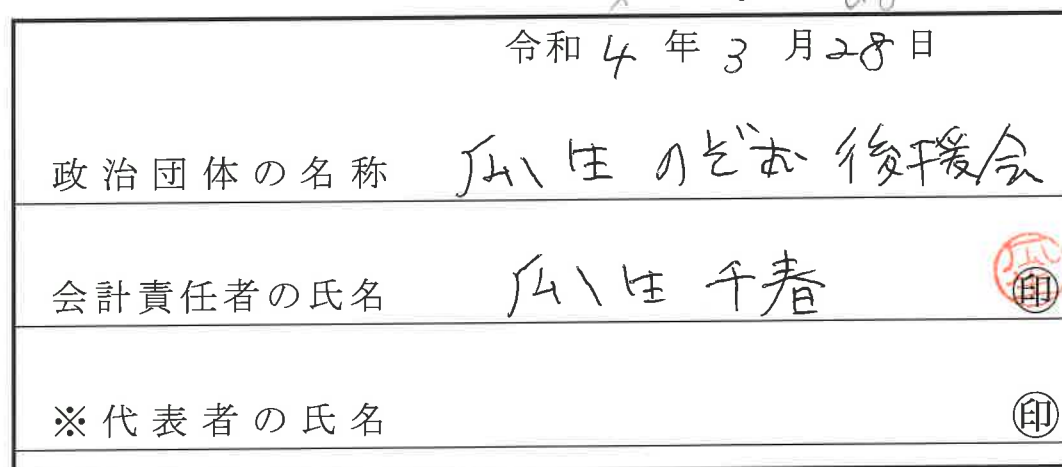 令和4年3月28日
政治団体の名称 広生のぞむ後援会
会計責任者の氏名 広生千春 印
※代表者の氏名 印